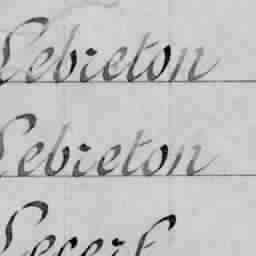 Lebreton
Lebreton
Lecerf